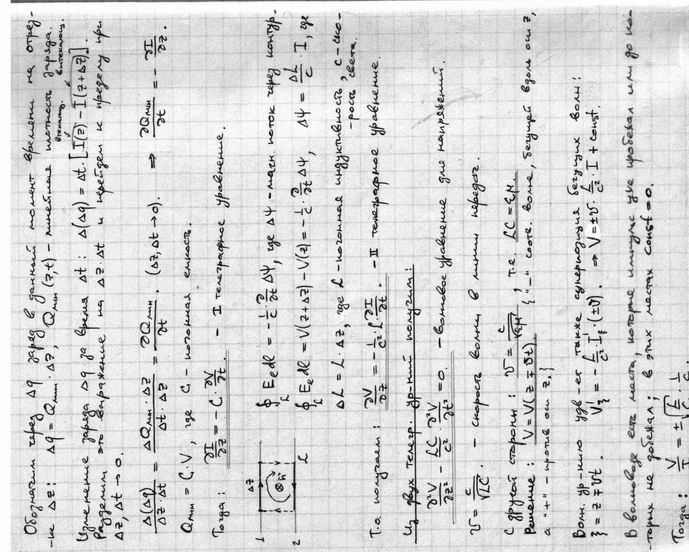 Обозначим через Δq заряд в данный момент времени на отрез-
-ке Δz: Δq = Qмин·Δz, Qмин(z,t) – линейная плотность заряда.
втекающ. вытекающ.
Изменение заряда Δq за время Δt: Δ(Δq) = Δt·[I(z) - I(z+Δz)]
Разделим это выражение на Δz·Δt и перейдем к пределу при
Δz, Δt → 0.
Δ(Δq)/(Δz·Δt) = ΔQмин·Δz/(Δt·Δz) = ∂Qмин/∂t. (Δz, Δt→0). ⇒ ∂Qмин/∂t = - ∂I/∂z.
Qмин = C·V, где C – погонная емкость.
Тогда: ∂I/∂z = -C·∂V/∂t - I телеграфное уравнение.
1 Δz
2 L
n
∮ E_e dl = -1/c ∂/∂t ΔΨ, где ΔΨ – магн. поток через контур.
∮ E_e dl = V(z+Δz) - V(z) = -1/c·∂/∂t ΔΨ, ΔΨ = ΔL/c · I, где
ΔL = L·Δz, где L – погонная индуктивность, c – ско-
рость света.
Т.о. получаем: ∂V/∂z = -1/c² L ∂I/∂t. - II телеграфное уравнение.
Из двух телегр. ур-ний получим:
∂²V/∂z² - LC/c² ∂²V/∂t² = 0. - волновое уравнение для напряжений.
v = c/√LC. - скорость волны в линии передач.
С другой стороны: v = c/√εμ, т.е. LC = εμ.
Решение: V = V(z ∓ vt) {"–" соотв. волне, бегущей вдоль оси z,
а "+" – против оси z,}
Волн. ур-нию удв-ет также суперпозиция бегущих волн:
ξ = z ∓ vt. V'ξ = -L/c² I'ξ·(±v). ⇒ V = ±v·L/c²·I + const.
В волноводе есть места, которые импульс уже пробежал или до ко-
торых не добежал; в этих местах const = 0.
Тогда: V/I = ±√L/C · 1/c